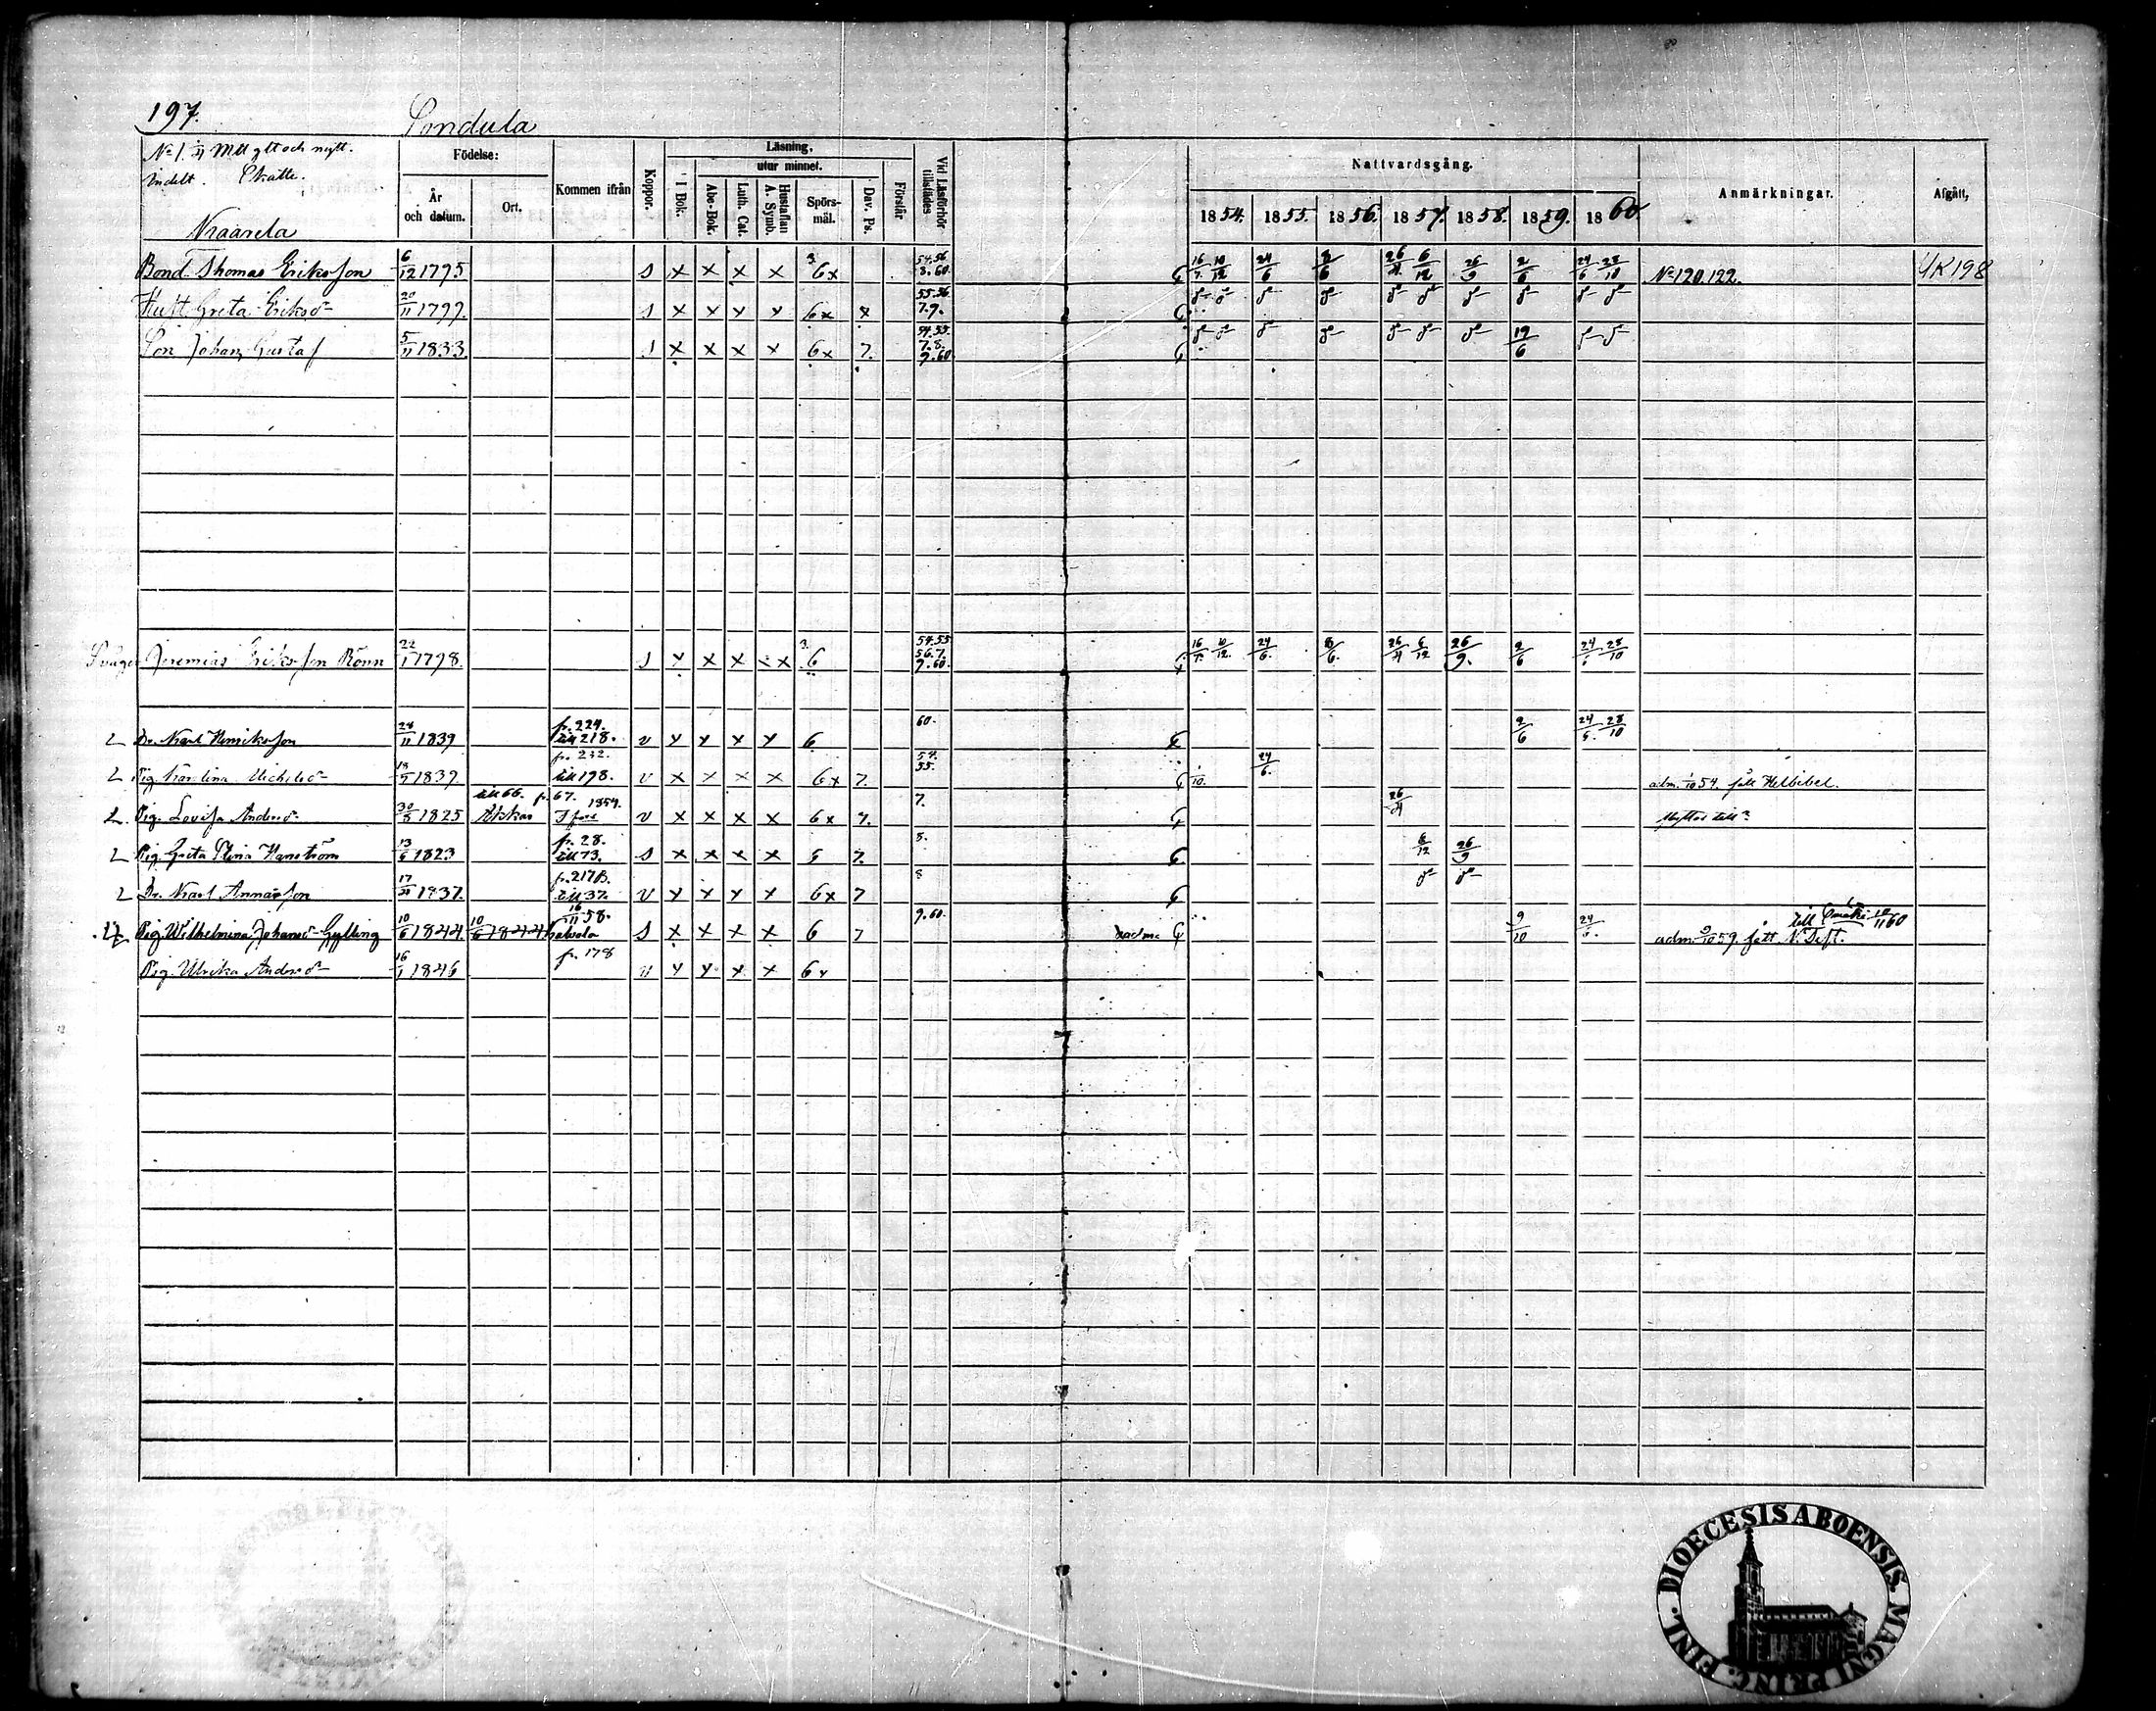 197. Sondula
No 1. Mtl gtt och nytt.
Indelt. Skatte.
Födelse: År och datum. Ort. Kommen ifrån Koppor. Läsning, I Bok. utur minnet. Abc-Bok. Luth. Cat. Hustaflan A. Symb. Spörsmål. Dav. Ps. Förstår Vid Läsförhör tillstädes Nattvardsgång. 1854. 1855. 1856. 1857. 1858. 1859. 1860. Anmärkningar. Afgått,
Bond. Thomas Eriksson 6/12 1795 s x x x x 6x 54.56 8.60. 16/7. 10/12 24/6 8/6 26/4 6/12 26/9 2/6 24/6 28/10 No 120.122. YK198
Hust. Greta Eriksdr 20/11 1799. s x x x x 6x x 55.56 7.9.
Son Johan Gustaf 5/11 1833. s x x x x 6x 7. 54.55. 7.8. 9.60. 19/6
Jeremias Eriksson Rönn 22/1 1798. s x x x x x 6 54.55 56.7. 9.60. 16/7. 10/12. 24/6. 8/6. 26/4 6/12 26/9. 2/6 24/6 28/10
2 Dr. Karl Henriksson 28/11 1839 fr. 224. till 218. v x x x x 6 60. 2/6 24/5. 28/10
2 Pig. Karolina 1839. fr. 232. till 198. v x x x x 6x 7. 54. 55. 1/10. 24/6. adm. 1/10 54. fått Helbibel.
2. Pig. Lovisa Andersdr 30/5 1825 till 66. fr. 67. 1854. v x x x x 6x 7. 7. 26/4 Flyttas till?
2 Pig. Greta Stina Hanström 13/6 1823 fr. 28. till 73. s x x x x 6 7. 8. 6/12 26/9
2 Dr. Karl Annasson 1837. fr. 217B. till 37. v x x x x 6x 7 8
Pig. Wilhelmina Johansdr Gylling 10/6 1844. 10/6 1844 16/11 58. s x x x x 6 7 9.60. 9/10 24/6. adm. 9/10 59. fått N. Test. till 60
Pig. Ulrika Andersdr 16/1 1846 fr. 178 v x x x x 6x
FINL. DIOECESIS ABOENSIS. MAGNI PRINC.